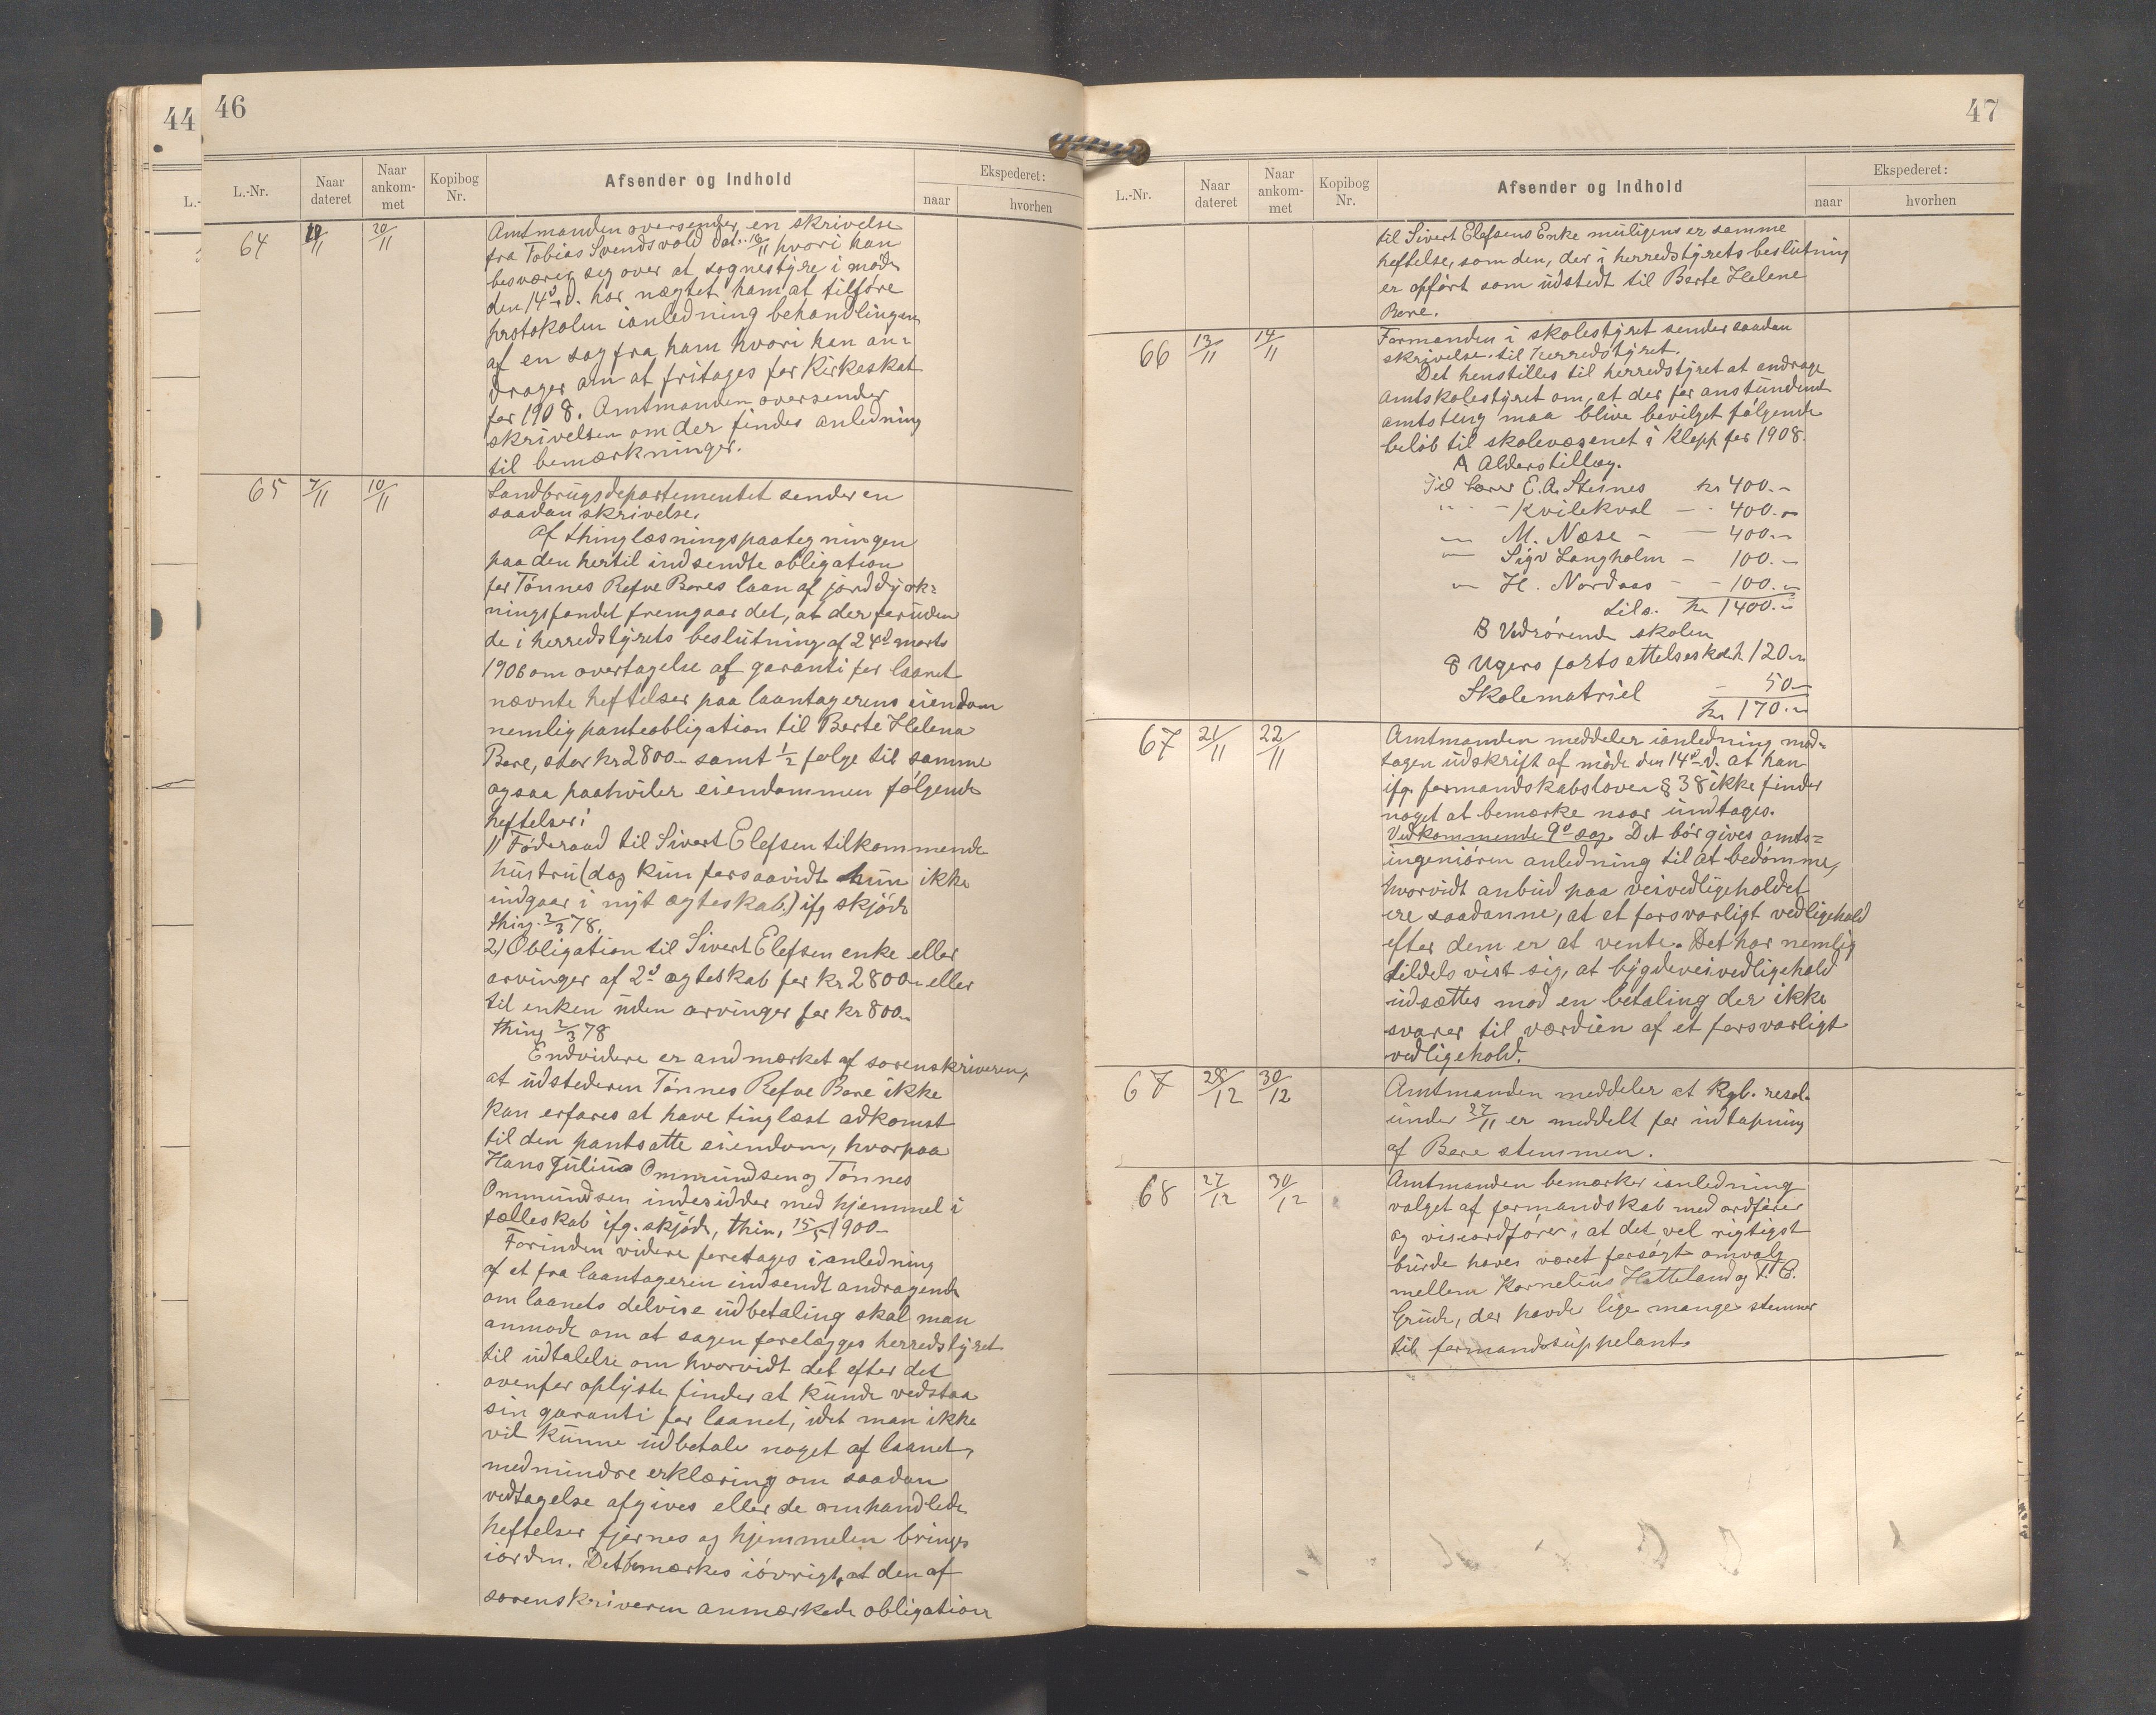 44
L.-
46
L.-Nr.
Naar dateret
Naar ankom-met
Kopibog Nr.
Afsender og Indhold
Ekspederet:
naar
hvorhen
64 19/11 20/11 Amtmanden oversender en skrivelse
fra Tobias Svendsvold dat. 16/11 hvori han
besværer sig over at sognestyre i møde
den 14d. d. har nægtet ham at tilføre
protokolen ianledning behandlingen
af en sag fra ham hvori han an-
drager om at fritages for Kirkeskat
for 1908. Amtmanden oversender
skrivelsen om der findes anledning
til bemærkninger.
65 7/11 10/11 Landbrugsdepartementet sender en
saadan skrivelse.
Af thinglæsningspaategningen
paa den hertil indsendte obligation
for Tønnes Refve Bores laan af jorddyrk-
ningsfondet fremgaar det, at der foruden
de i herredstyrets beslutning af 24d marts
1906 om overtagelse af garanti for laanet
nævnte heftelser paa laantagerens eiendom
nemlig panteobligation til Berte Helena
Bore, stor kr 2800.- samt 1/2 følge til samme
ogsaa paahviler eiendommen følgende
heftelser:
1) Føderaad til Sivert Elefsen tilkommende
hustru (dog kun forsaavidt hun ikke
indgaar i nyt ægteskab) ifg skjøde
thing. 2/3 78.
2) Obligation til Sivert Elefsen enke eller
arvinger af 2d ægteskab for kr 2800.- eller
til enken uden arvinger for kr 800.-
thing 2/3 78
Endvidere er andmærket af sorenskriveren,
at udstederen Tønnes Refve Bore ikke
kan erfares at have tinglæst adkomst
til den pantsatte eiendom, hvorpaa
Hans Julius Ommundsen og Tønnes
Ommundsen indesidder med hjemmel i
fælleskab ifg. skjøde, thin, 15/5 1900-
Forinden videre foretages i anledning
af et fra laantageren indsendt andragende
om laanets delvise udbetaling skal man
anmode om at sagen forelægges herredstyret
til udtalelse om hvorvidt det efter det
ovenfor oplyste finder at kunde vedstaa
sin garanti for laanet, idet man ikke
vil kunne udbetale noget af laanet,
medmindre erklæring om saadan
vedtagelse afgives eller de omhandlede
heftelser fjernes og hjemmelen brings
iorden. Det bemærkes iøvrigt, at den af
sorenskriveren anmærkede obligation
47
L.-Nr.
Naar dateret
Naar ankom-met
Kopibog Nr.
Afsender og Indhold
Ekspederet:
naar
hvorhen
til Sivert Elefsens Enke muligens er samme
heftelse, som den, der i herredstyrets beslutning
er opført som udstedt til Berte Helene
Bore.
66 13/11 14/11 Formanden i skolestyret sender saadan
skrivelse til herredstyret.
Det henstilles til herredstyret at andrage
amtskolestyret om, at der for anstundende
amtsting maa blive bevilget følgende
beløb til skolevæsenet i Klepp for 1908.
A Alderstillæg.
Til lærer E. A. Steines kr 400.-
" - - Kvilekval - - 400.-
- M. Næse - - 400.-
- Sigv Langholm - 100.-
- H. Nordaas - - 100.-
Tils. kr 1400.-
B Vedrørende skolen
8 Ugers fortsættelsesskole kr 120.-
Skolematriel - 50.-
kr 170.-
67 21/11 22/11 Amtmanden meddeler ianledning mod-
tagen udskrift af møde den 14d d. at han
ifg. formandskabsloven § 38 ikke finder
noget at bemærke naar undtages.
Vedkommende 9d sag. Det bør gives amts-
ingeniøren anledning til at bedømme,
hvorvidt anbud paa veivedligeholdet
ere saadanne, at et forsvarligt vedligehold
efter dem er at vente. Det har nemlig
tildels vist sig, at bygdeveivedligehold
udsættes mod en betaling der ikke
svarer til værdien af et forsvarligt
vedligehold.
67 28/12 30/12 Amtmanden meddeler at Kgl. resol.
under 27/11 er meddelt for udtapning
af Bore stemmen.
68 27/12 30/12 Amtmanden bemærker ianledning
valget af formandskab med ordfører
og viseordfører, at det vel rigtigst
burde haves været forsøgt omvalg
mellem Kornelius Hatteland og T. C.
Grude, der havde lige mange stemmer
til formandssuppelant.